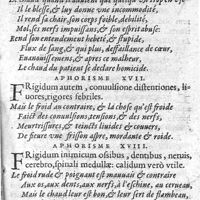 Il le blesse, & luy donne vne incommodité,
Il rend sa chair, son corps foible, debilité,
Mol, ses nerfs impuissans, & son esprit abuse:
Rend son entendement hebeté, & stupide,
Flux de sang, & qui plus, deffaillance de cœur,
Euanouissemens, & apres ce malheur,
Le chaud du patient se declare homicide.
APHORISME XVII.
FRigidum autem, conuulsiones distentiones, li-
uores, rigores febriles.
Mais le froid au contraire, & la chose qu'est froide
Faict des conuulsions, tensions, & des nerfs,
Meurtrissures, & teincts liuides & couuers,
De fieure une frisson aspre, mordante & roide.
APHORISME XVIII.
FRigidum inimicum ossibus, dentibus, neruis,
cerebro, spinali medullæ: calidum verò vtile.
Le froid rude & poignant est mauuais & contraire
Aux os, aux dents, aux nerfs, à l'eschine, au cerueau,
Mais le chaud leur est bon, & leur sert de flambeau,